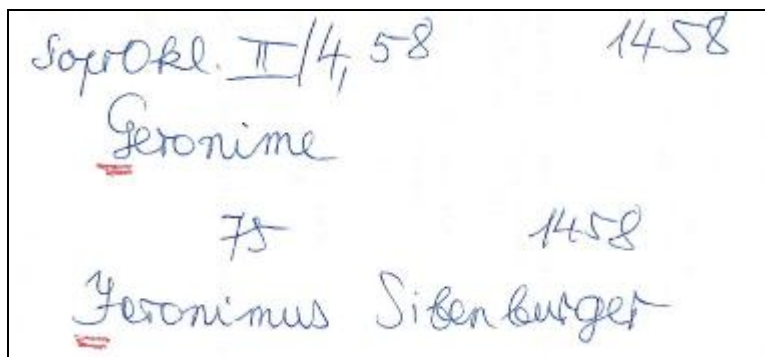 SoprOkl. II/4, 58 1458
Geronime
75 1458
Jeronimus Sibenburger